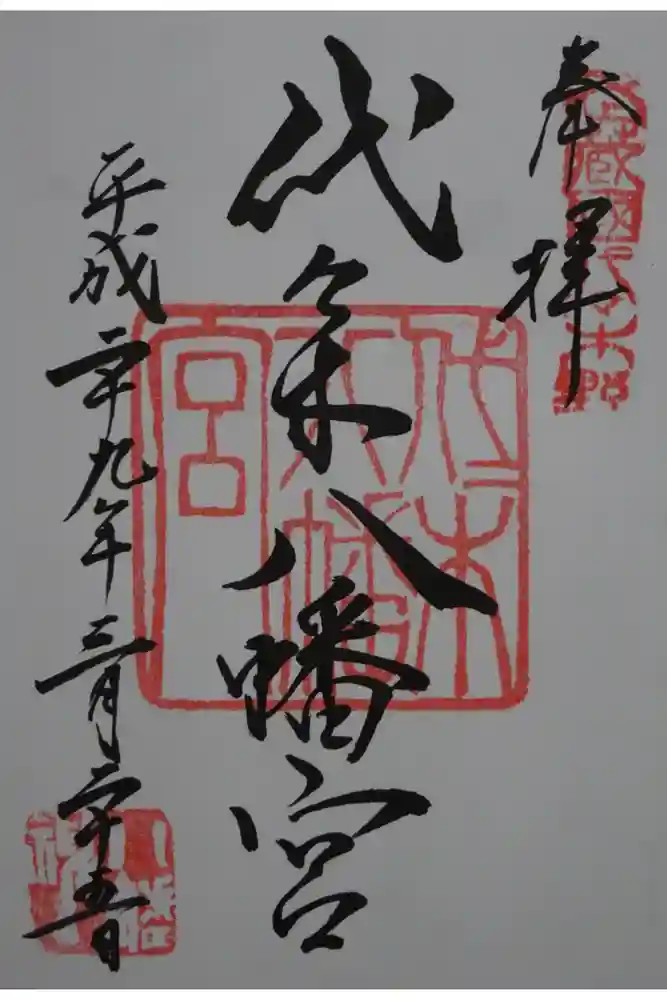 奉拝
武蔵國代々木野
代々木八幡宮
代々木八幡宮
平成二十九年三月二十五日